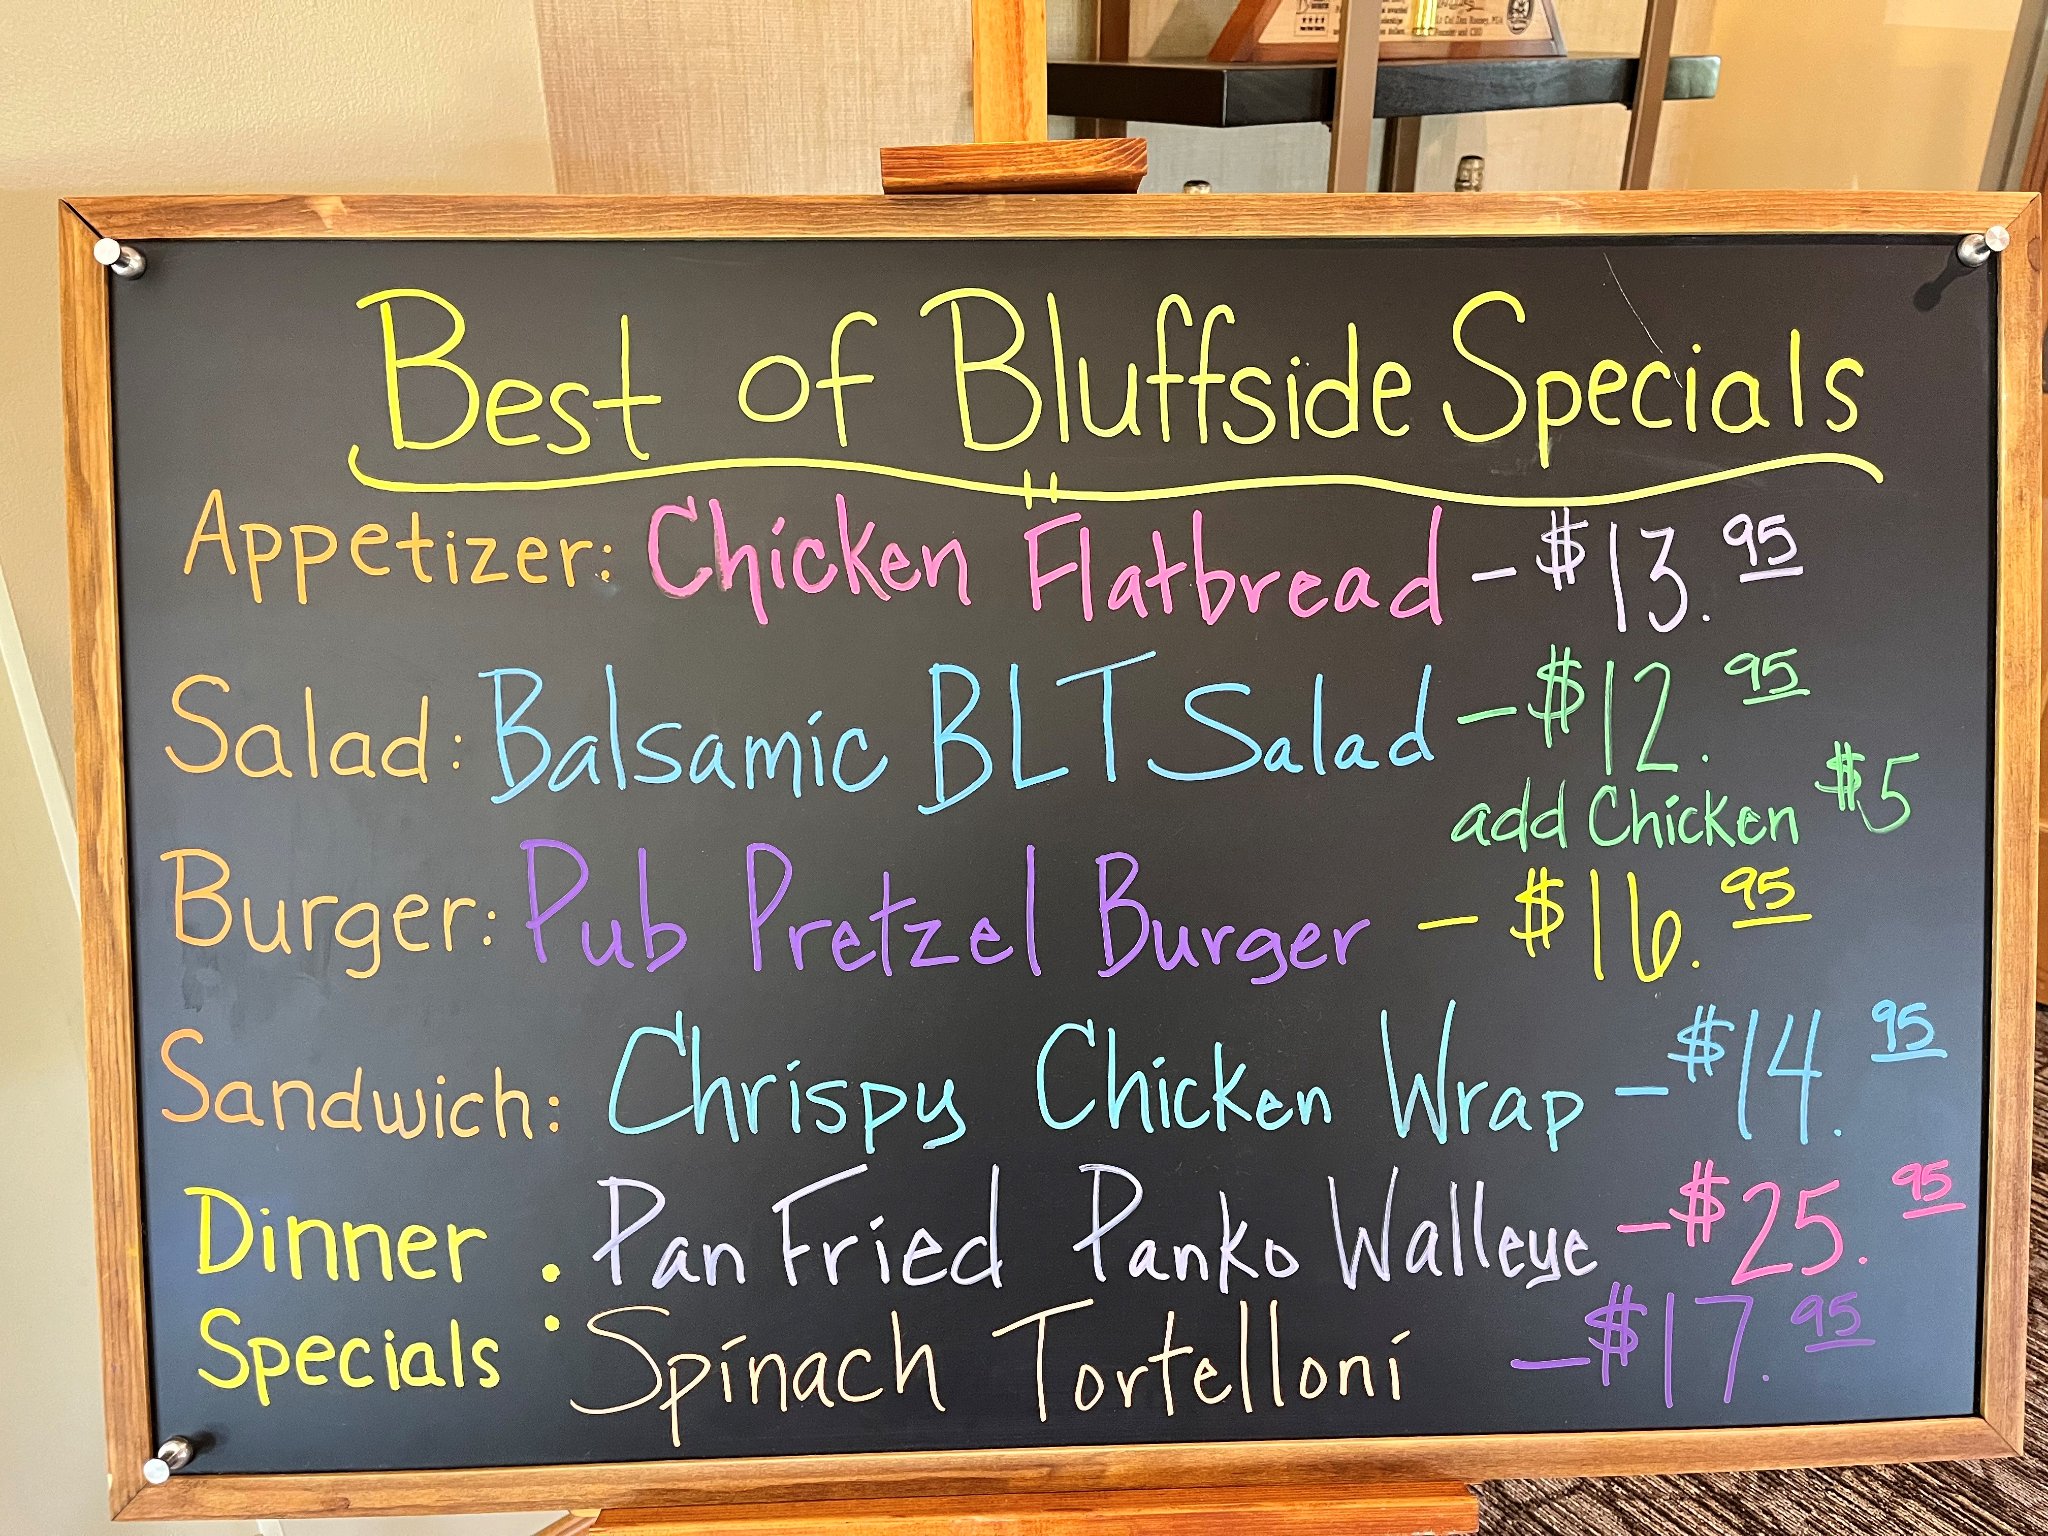 Lt Col Dan Rooney, PGA
Founder and CEO
Best of Bluffside Specials
Appetizer: Chicken Flatbread - $13.95
Salad: Balsamic BLT Salad - $12.95
add Chicken $5
Burger: Pub Pretzel Burger - $16.95
Sandwich: Chrispy Chicken Wrap - $14.95
Dinner Specials: Pan Fried Panko Walleye - $25.95
Spinach Tortelloni - $17.95